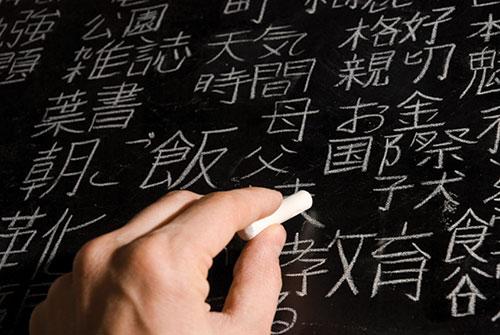 強 公園 格好
題 雑誌 天気 親切 魅
葉書 時間 母 お金
朝ご飯 父 国際
子犬
化 教育 食
る